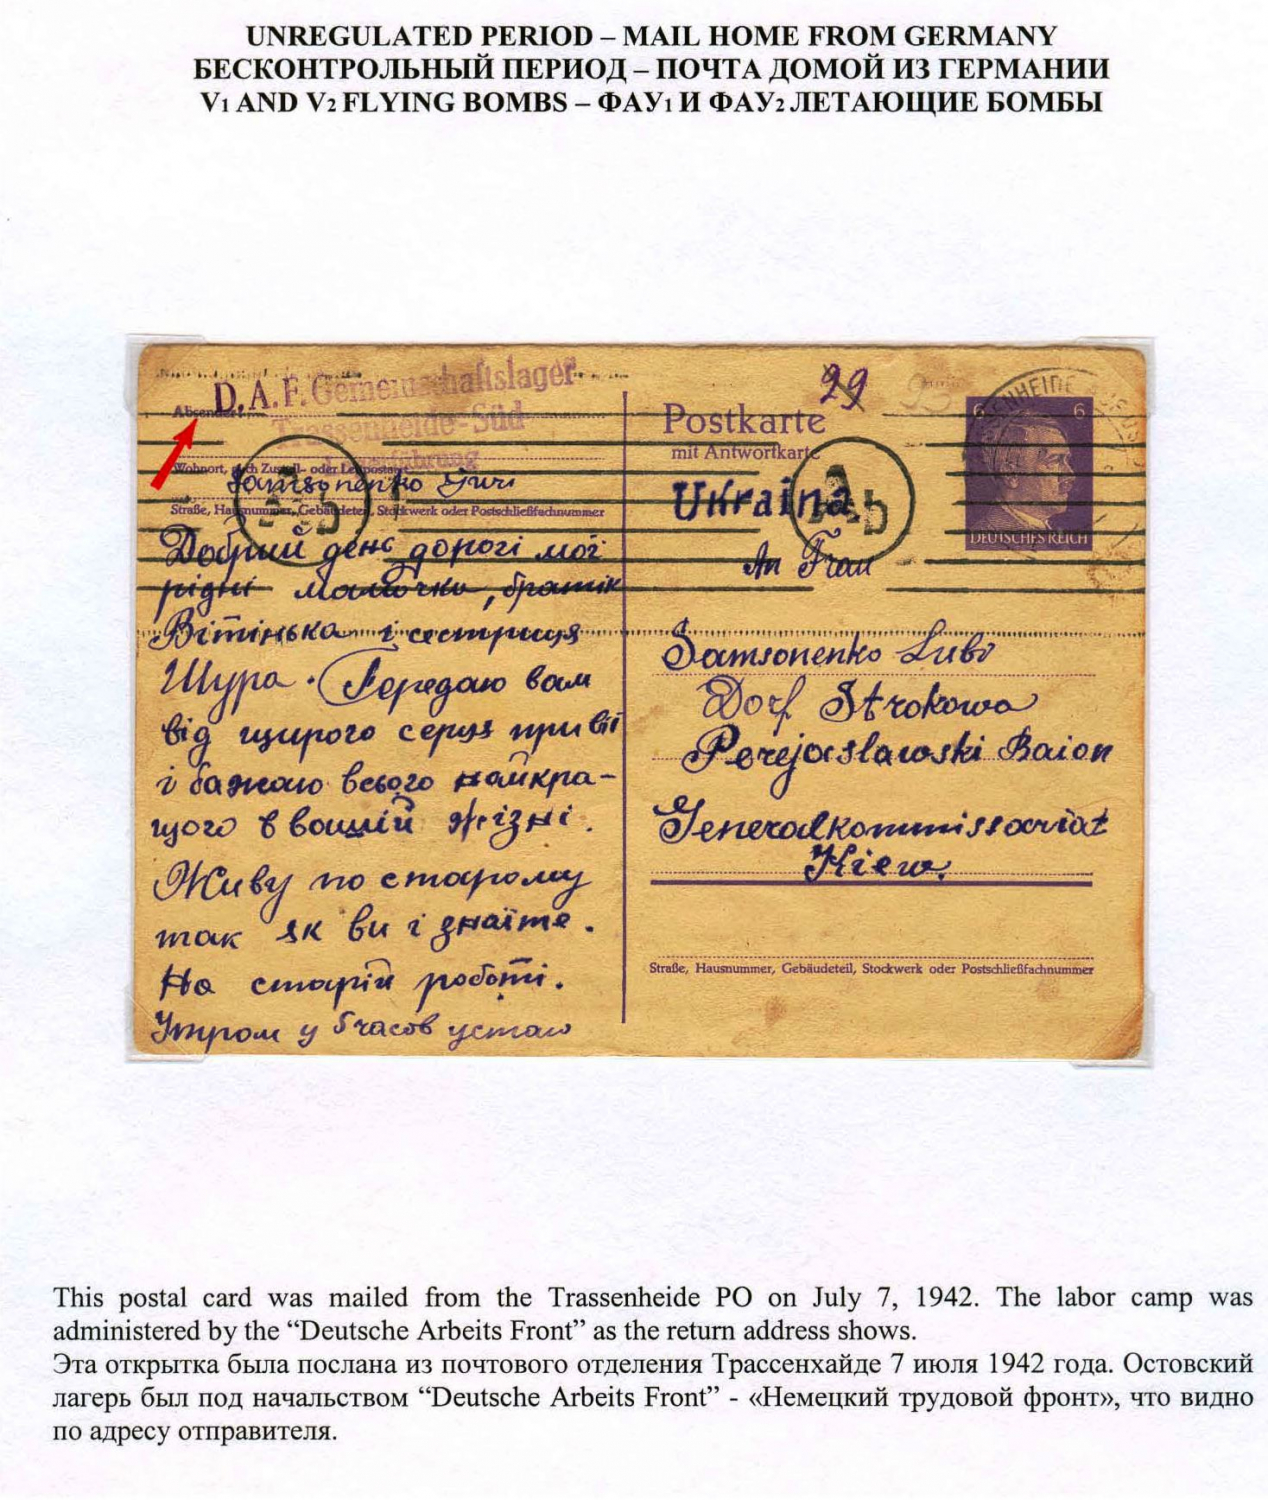 UNREGULATED PERIOD – MAIL HOME FROM GERMANY
БЕСКОНТРОЛЬНЫЙ ПЕРИОД – ПОЧТА ДОМОЙ ИЗ ГЕРМАНИИ
V1 AND V2 FLYING BOMBS – ФАУ1 И ФАУ2 ЛЕТАЮЩИЕ БОМБЫ
D.A.F. Gemeinschaftslager
Trassenheide-Süd
Absender:
Wohnort, auch Zustell- oder Leitpostamt
Samsonenko Juri
Straße, Hausnummer, Gebäudeteil, Stockwerk oder Postschließfachnummer
Добрий день дорогі мої
рідні мамочка, братік
Вітінька і сестриця
Шура. Передаю вам
від щирого серця привіт
і бажаю всього найкра-
щого в вашій жізні.
Живу по старому
так як ви і знаїте.
На старій роботі.
Утром у 5 часов устаю
29
Postkarte
mit Antwortkarte
Ab
Ab
6 6
DEUTSCHES REICH
Ukraina
An Frau
Samsonenko Lubo
Dorf Strokowa
Perejaslawski Raion
Generalkommissariat
Kiew.
Straße, Hausnummer, Gebäudeteil, Stockwerk oder Postschließfachnummer
This postal card was mailed from the Trassenheide PO on July 7, 1942. The labor camp was
administered by the “Deutsche Arbeits Front” as the return address shows.
Эта открытка была послана из почтового отделения Трассенхайде 7 июля 1942 года. Остовский
лагерь был под начальством “Deutsche Arbeits Front” - «Немецкий трудовой фронт», что видно
по адресу отправителя.